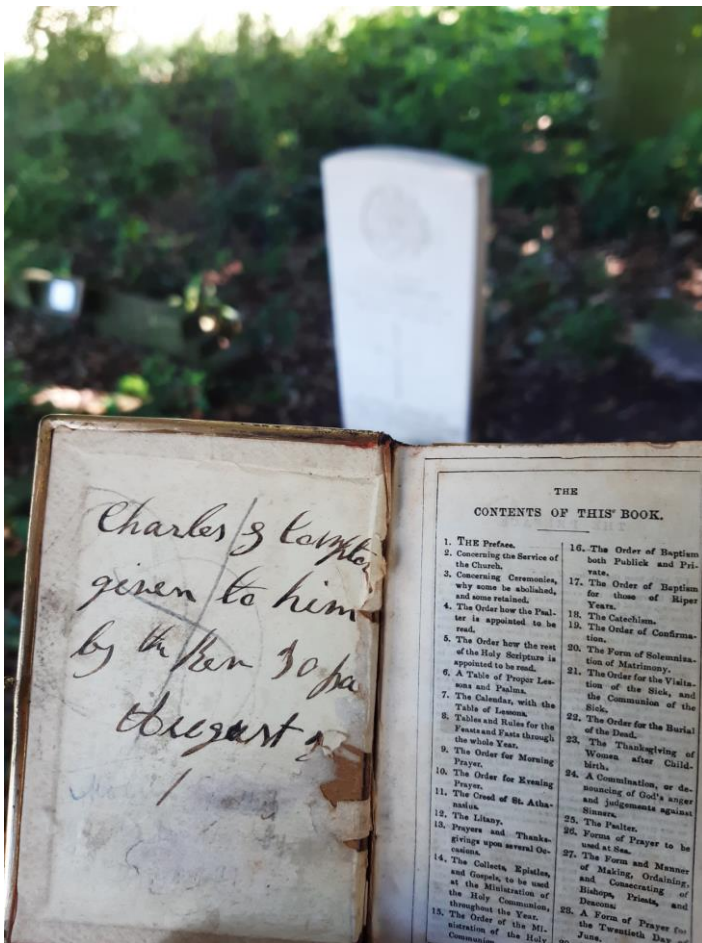 Charles
given to him
by the
August
THE
CONTENTS OF THIS BOOK.
1. THE Preface.
2. Concerning the Service of
the Church.
3. Concerning Ceremonies,
why some be abolished,
and some retained.
4. The Order how the Psal-
ter is appointed to be
read.
5. The Order how the rest
of the Holy Scripture is
appointed to be read.
6. A Table of Proper Les-
sons and Psalms.
7. The Calendar, with the
Table of Lessons.
8. Tables and Rules for the
Feasts and Fasts through
the whole Year.
9. The Order for Morning
Prayer.
10. The Order for Evening
Prayer.
11. The Creed of St. Atha-
nasius.
12. The Litany.
13. Prayers and Thanks-
givings upon several Oc-
casions.
14. The Collects, Epistles,
and Gospels, to be used
at the Ministration of
the Holy Communion,
throughout the Year.
15. The Order of the Mi-
nistration of the Holy
Communion
16. The Order of Baptism
both Publick and Pri-
vate.
17. The Order of Baptism
for those of Riper
Years.
18. The Catechism.
19. The Order of Confirma-
tion.
20. The Form of Solemniza-
tion of Matrimony.
21. The Order for the Visita-
tion of the Sick, and
the Communion of the
Sick.
22. The Order for the Burial
of the Dead.
23. The Thanksgiving of
Women after Child-
birth.
24. A Commination, or de-
nouncing of God's anger
and judgements against
Sinners.
25. The Psalter.
26. Forms of Prayer to be
used at Sea.
27. The Form and Manner
of Making, Ordaining,
and Consecrating of
Bishops, Priests, and
Deacons:
28. A Form of Prayer for
the Twentieth Day of
June.